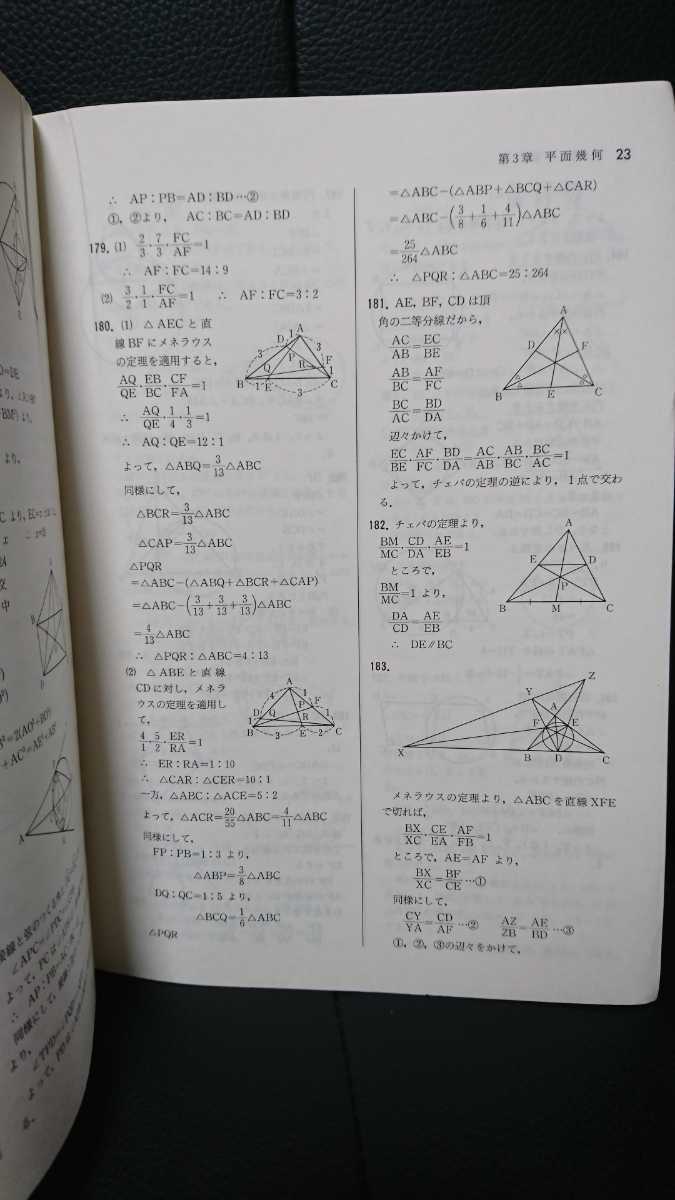 第3章 平面幾何 23
∴ AP：PB＝AD：BD …②
①，②より， AC：BC＝AD：BD
179. (1) 2/3・7/3・FC/AF＝1
∴ AF：FC＝14：9
(2) 3/2・1/1・FC/AF＝1 ∴ AF：FC＝3：2
180. (1) △AEC と直
線BFにメネラウス
の定理を適用すると，
AQ/QE・EB/BC・CF/FA＝1
∴ AQ/QE・1/4・1/3＝1
∴ AQ：QE＝12：1
よって，△ABQ＝3/13△ABC
同様にして，
△BCR＝3/13△ABC
△CAP＝3/13△ABC
△PQR
＝△ABC－(△ABQ＋△BCR＋△CAP)
＝△ABC－(3/13＋3/13＋3/13)△ABC
＝4/13△ABC
∴ △PQR：△ABC＝4：13
(2) △ABE と直線
CDに対し，メネラ
ウスの定理を適用し
て，
4/1・5/2・ER/RA＝1
∴ ER：RA＝1：10
∴ △CAR：△CER＝10：1
一方，△ABC：△ACE＝5：2
よって，△ACR＝20/55△ABC＝4/11△ABC
同様にして，
FP：PB＝1：3 より，
△ABP＝3/8△ABC
DQ：QC＝1：5 より，
△BCQ＝1/6△ABC
△PQR
＝△ABC－(△ABP＋△BCQ＋△CAR)
＝△ABC－(3/8＋1/6＋4/11)△ABC
＝25/264△ABC
∴ △PQR：△ABC＝25：264
181. AE，BF，CD は頂
角の二等分線だから，
AC/AB＝EC/BE
AB/BC＝AF/FC
BC/AC＝BD/DA
辺々かけて，
EC/BE・AF/FC・BD/DA＝AC/AB・AB/BC・BC/AC＝1
よって，チェバの定理の逆により，1点で交わ
る．
182. チェバの定理より，
BM/MC・CD/DA・AE/EB＝1
ところで，
BM/MC＝1 より，
DA/CD＝AE/EB
∴ DE∥BC
183.
メネラウスの定理より，△ABCを直線XFE
で切れば，
BX/XC・CE/EA・AF/FB＝1
ところで，AE＝AF より，
BX/XC＝BF/CE …①
同様にして，
CY/YA＝CD/AF …② AZ/ZB＝AE/BD …③
①，②，③の辺々をかけて，